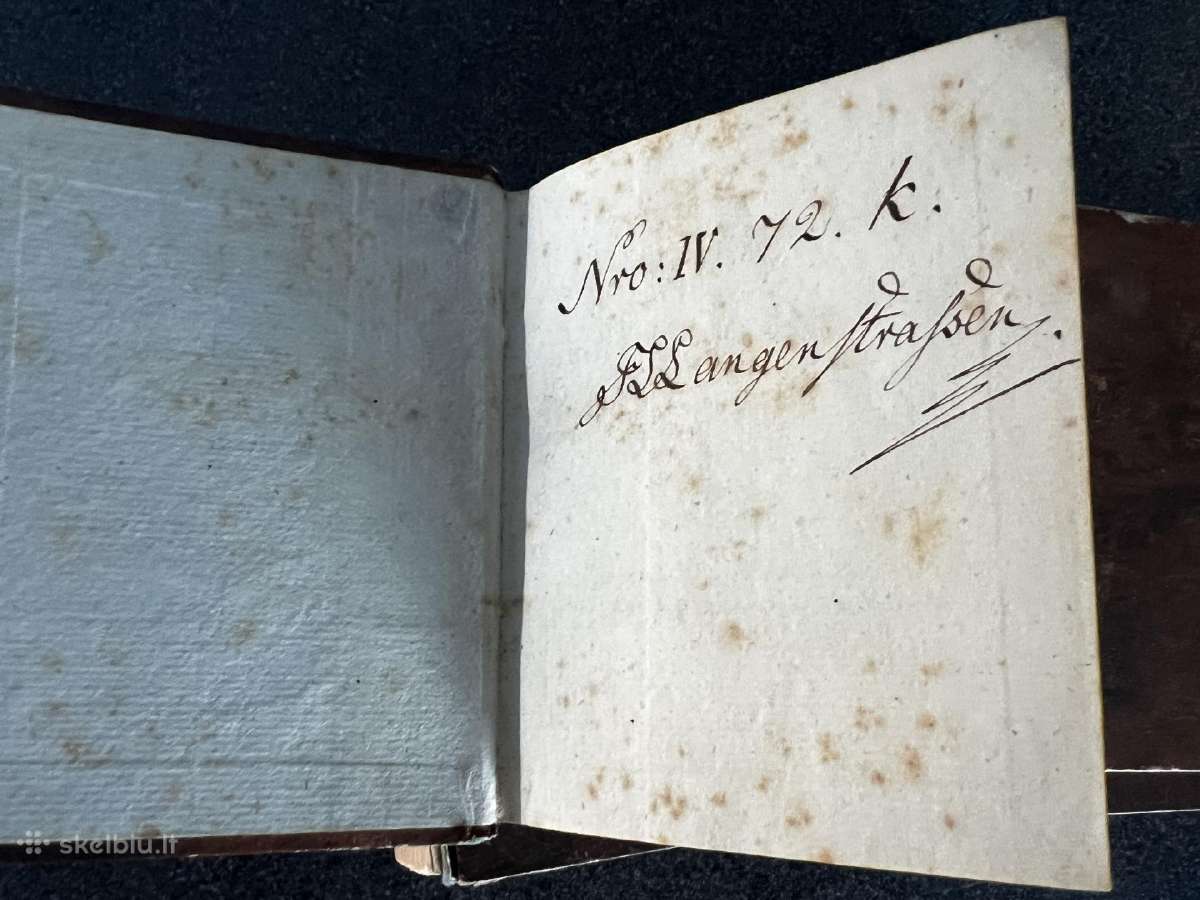 Nro: IV. 72. k.
JLLangenstrassen.
skelbiu.lt